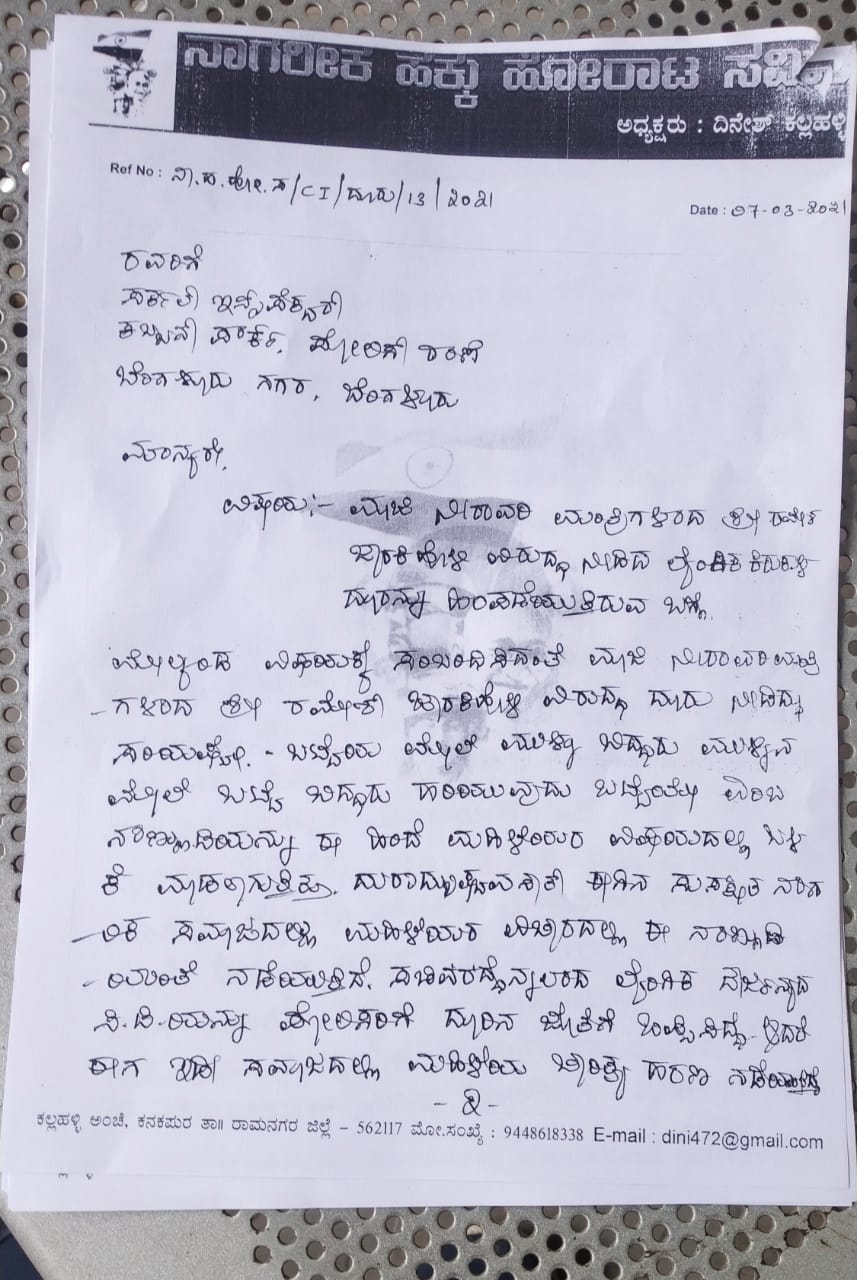 ನಾಗರೀಕ ಹಕ್ಕು ಹೋರಾಟ ಸಮಿತಿ
ಅಧ್ಯಕ್ಷರು : ದಿನೇಶ್ ಕಲ್ಲಹಳ್ಳಿ
Ref No : ನಾ.ಹ.ಹೋ.ಸ/CI/ದೂರು/13/2021
Date : 07-03-2021
ರವರಿಗೆ
ಸರ್ಕಲ್ ಇನ್ಸ್ಪೆಕ್ಟರ್
ಕಬ್ಬನ್ ಪಾರ್ಕ್, ಪೋಲಿಸ್ ಠಾಣೆ
ಬೆಂಗಳೂರು ನಗರ, ಬೆಂಗಳೂರು
ಮಾನ್ಯರೇ,
ವಿಷಯ:- ಮಾಜಿ ನೀರಾವರಿ ಮಂತ್ರಿಗಳಾದ ಶ್ರೀ ರಮೇಶ
ಜಾರಕಿಹೊಳಿ ವಿರುದ್ಧ ನೀಡಿದ ಲೈಂಗಿಕ ಕಿರುಕುಳ
ದೂರನ್ನು ಹಿಂಪಡೆಯುತ್ತಿರುವ ಬಗ್ಗೆ.
ಮೇಲ್ಕಂಡ ವಿಷಯಕ್ಕೆ ಸಂಬಂದಿಸಿದಂತೆ ಮಾಜಿ ನೀರಾವರಿ ಮಂತ್ರಿ
-ಗಳಾದ ಶ್ರೀ ರಮೇಶ್ ಜಾರಕಿಹೊಳಿ ವಿರುದ್ಧ ದೂರು ನೀಡಿದ್ದು
ಸರಿಯಷ್ಟೇ. - ಬಟ್ಟೆಯ ಮೇಲೆ ಮುಳ್ಳು ಬಿದ್ದರು ಮುಳ್ಳಿನ
ಮೇಲೆ ಬಟ್ಟೆ ಬಿದ್ದರು ಹರಿಯುವುದು ಬಟ್ಟೆಯೇ ಎಂಬ
ನಾಣ್ಣುಡಿಯನ್ನು ಈ ಹಿಂದೆ ಮಹಿಳೆಯರ ವಿಷಯದಲ್ಲಿ ಬಳ
ಕೆ ಮಾಡಲಾಗುತ್ತಿತ್ತು. ದುರಾದೃಷ್ಟವಶಾತ್ ಈಗಿನ ಸುಸಕ್ಷಿತ ನಾಗ
-ರಿಕ ಸಮಾಜದಲ್ಲಿ ಮಹಿಳೆಯರ ವಿಚಾರದಲ್ಲಿ ಈ ನಾಣ್ಣುಡಿ
-ಯಂತೆ ನಡೆಯುತ್ತಿದೆ. ಸಚಿವರದ್ದೆನ್ನಲಾದ ಲೈಂಗಿಕ ದೌರ್ಜನ್ಯದ
ಸಿ.ಡಿ.ಯನ್ನು ಪೋಲಿಸರಿಗೆ ದೂರಿನ ಜೊತೆಗೆ ಒಪ್ಪಿಸಿದ್ದೆ. ಆದರೆ
ಈಗ ಇಡೀ ಸಮಾಜದಲ್ಲಿ ಮಹಿಳೆಯ ಚಾರಿತ್ರ್ಯ ಹರಣ ನಡೆಯುತ್ತಿದ್ದು
-2-
ಕಲ್ಲಹಳ್ಳಿ ಅಂಚೆ, ಕನಕಪುರ ತಾ॥ ರಾಮನಗರ ಜಿಲ್ಲೆ – 562117 ಮೋ.ಸಂಖ್ಯೆ : 9448618338 E-mail : dini472@gmail.com